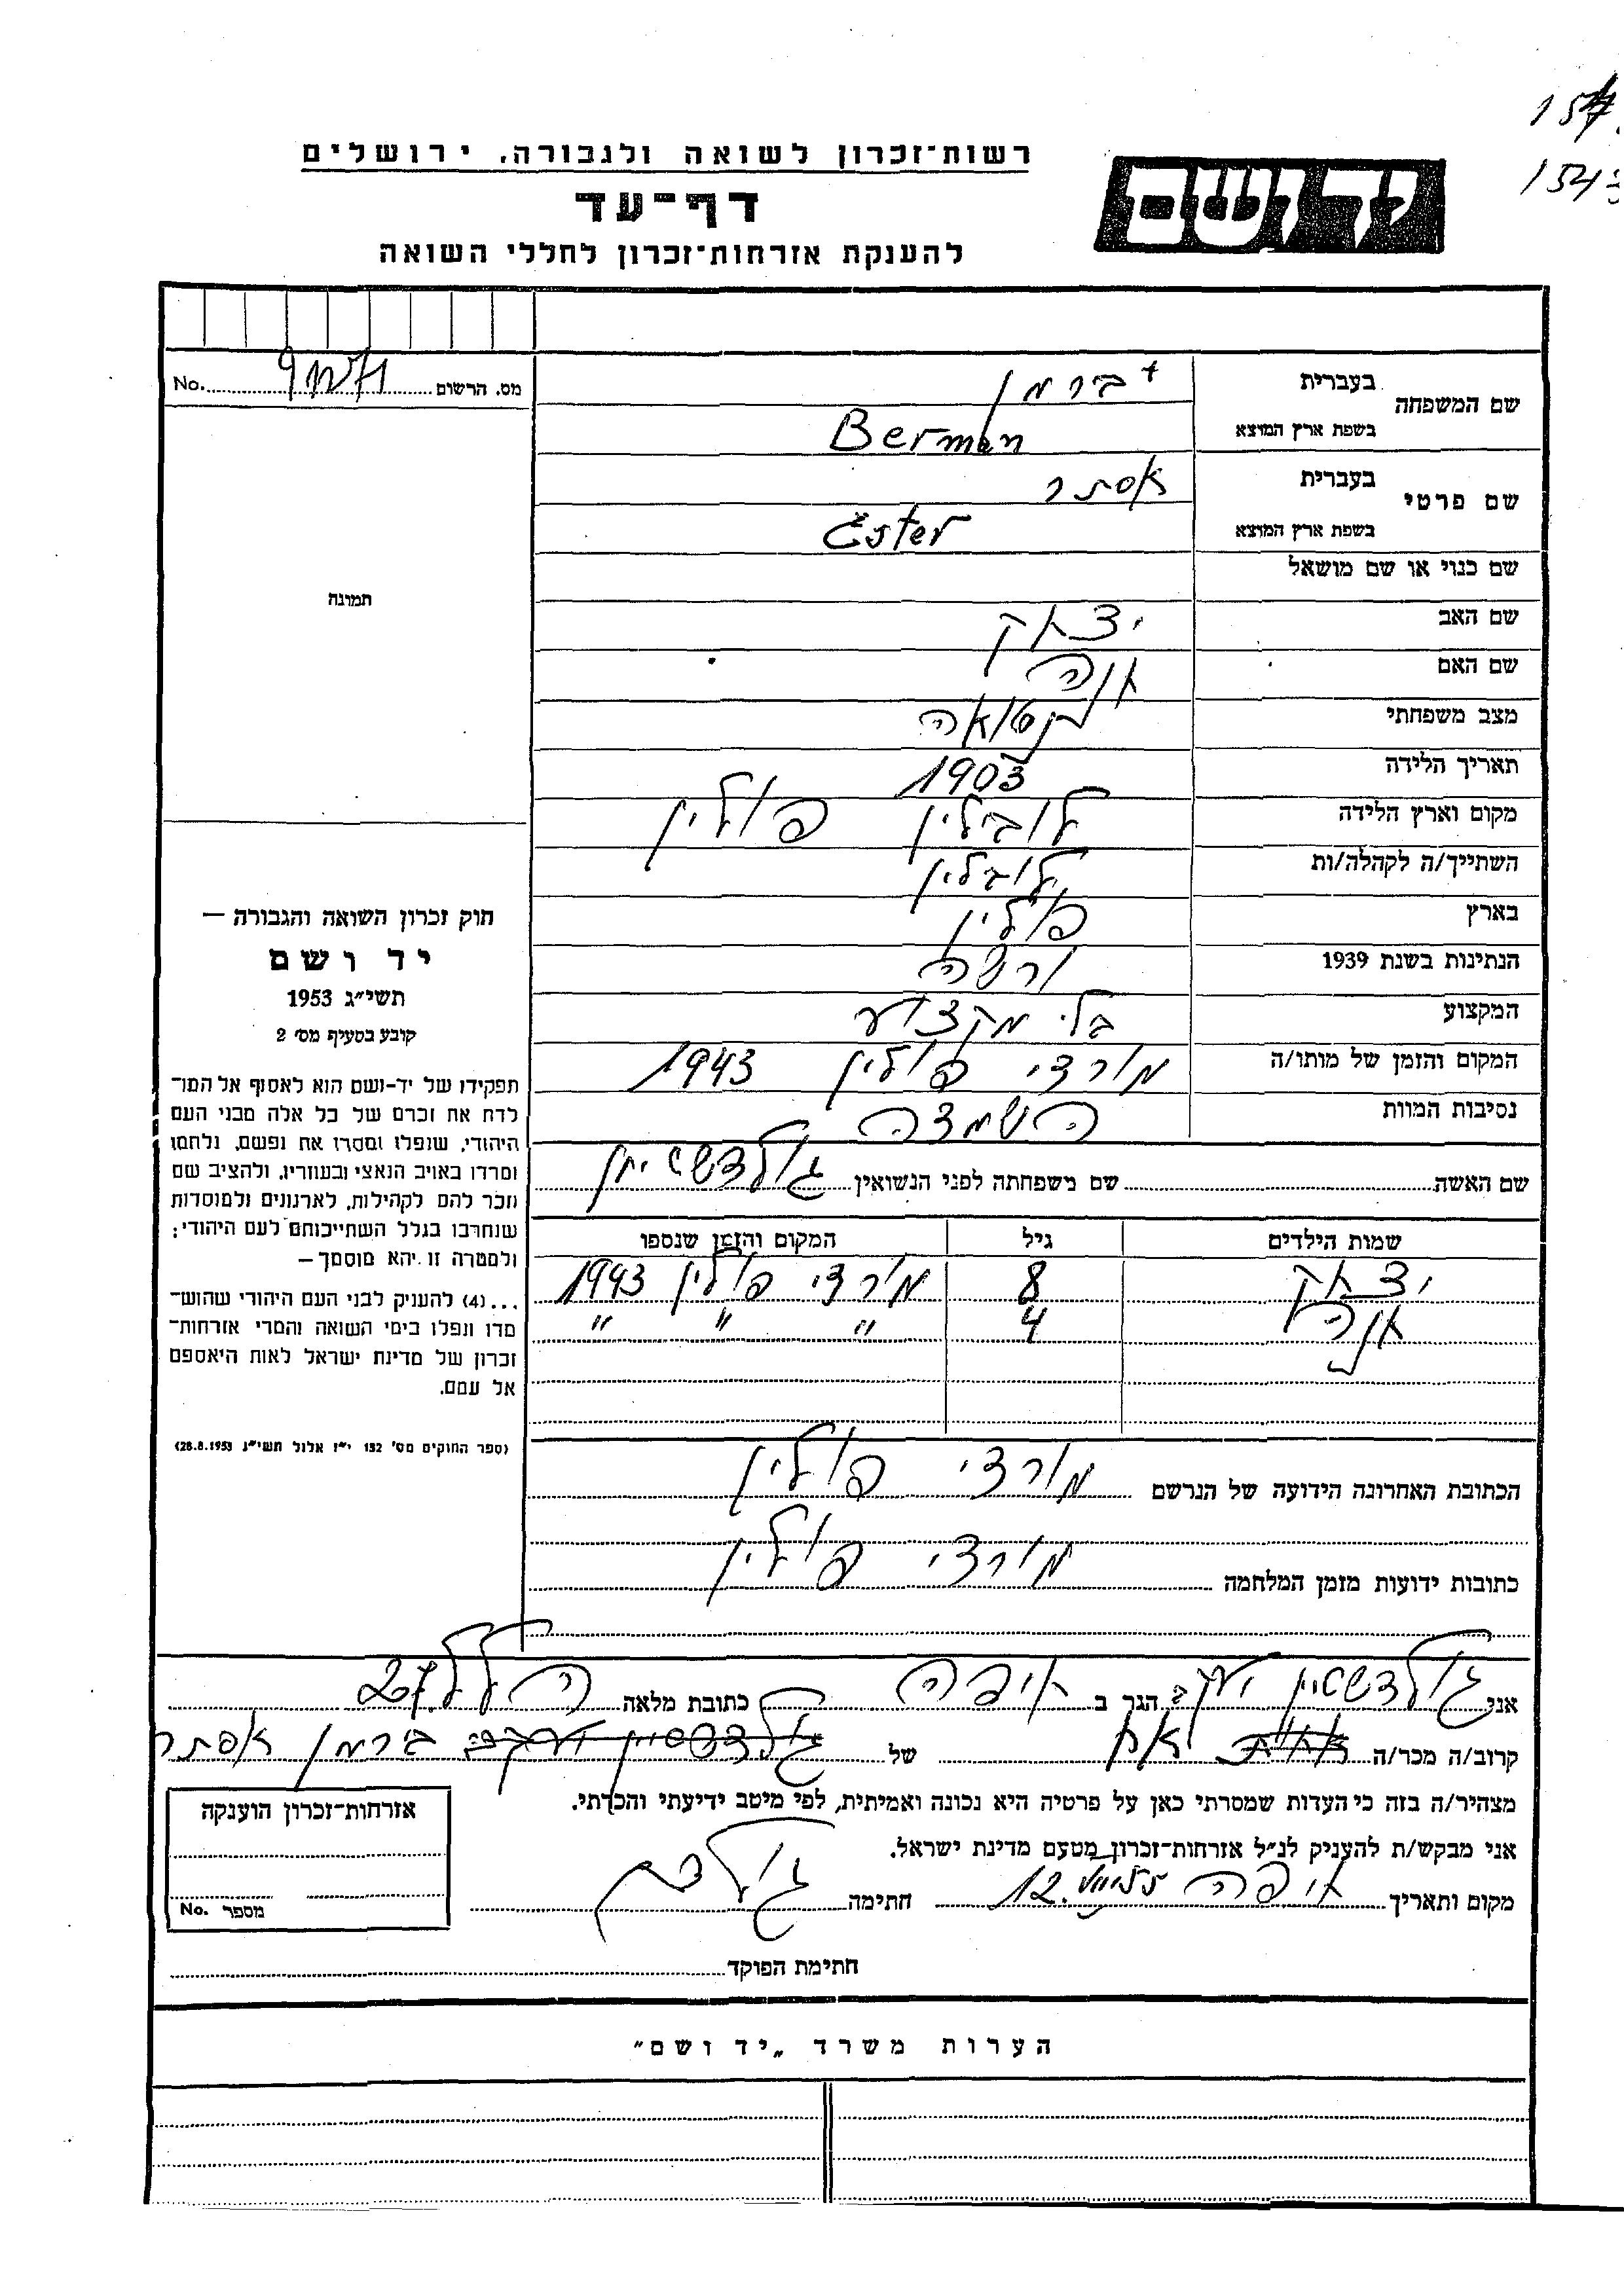 154
רשות־זכרון לשואה ולגבורה, ירושלים
דף־עד
להענקת אזרחות־זכרון לחללי השואה
יד ושם
שם המשפחה בעברית ברמן
בשפת ארץ המוצא Berman
שם פרטי בעברית אסתר
בשפת ארץ המוצא Ester
שם כנוי או שם מושאל
שם האב יצחק
שם האם
מצב משפחתי נשואה
תאריך הלידה 1903
מקום וארץ הלידה לובלין פולין
השתייך/ה לקהלה/ות לובלין
בארץ פולין
הנתינות בשנת 1939
המקצוע בלי מקצוע
המקום והזמן של מותו/ה מורדי פולין 1943
נסיבות המוות השמדה
שם האשה שם משפחתה לפני הנשואין גולדשטיין
שמות הילדים גיל המקום והזמן שנספו
יצחק 8 מורדי פולין 1943
4 " " "
הכתובת האחרונה הידועה של הנרשם מורדי פולין
כתובות ידועות מזמן המלחמה מורדי פולין
מס. הרשום No.
תמונה
חוק זכרון השואה והגבורה —
יד ושם
תשי״ג 1953
קובע בסעיף מס׳ 2
תפקידו של יד־ושם הוא לאסוף אל המו־
לדת את זכרם של כל אלה מבני העם
היהודי, שנפלו ומסרו את נפשם, נלחמו
ומרדו באויב הנאצי ובעוזריו, ולהציב שם
וזכר להם לקהילות, לארגונים ולמוסדות
שנחרבו בגלל השתייכותם לעם היהודי;
ולמטרה זו יהא מוסמך —
...(4) להעניק לבני העם היהודי שהוש־
מדו ונפלו בימי השואה והמרי אזרחות־
זכרון של מדינת ישראל לאות היאספם
אל עמם.
(ספר החוקים מס׳ 132 י״ז אלול תשי״ג 28.8.1953)
אני גולדשטיין יעקב הגר ב חיפה כתובת מלאה הלל 27
קרוב/ה מכר/ה אח של ברמן אסתר
מצהיר/ה בזה כי העדות שמסרתי כאן על פרטיה היא נכונה ואמיתית, לפי מיטב ידיעתי והכרתי.
אני מבקש/ת להעניק לנ״ל אזרחות־זכרון מטעם מדינת ישראל.
מקום ותאריך חיפה 12. חתימה
חתימת הפוקד
אזרחות־זכרון הוענקה
מספר No.
הערות משרד „יד ושם״